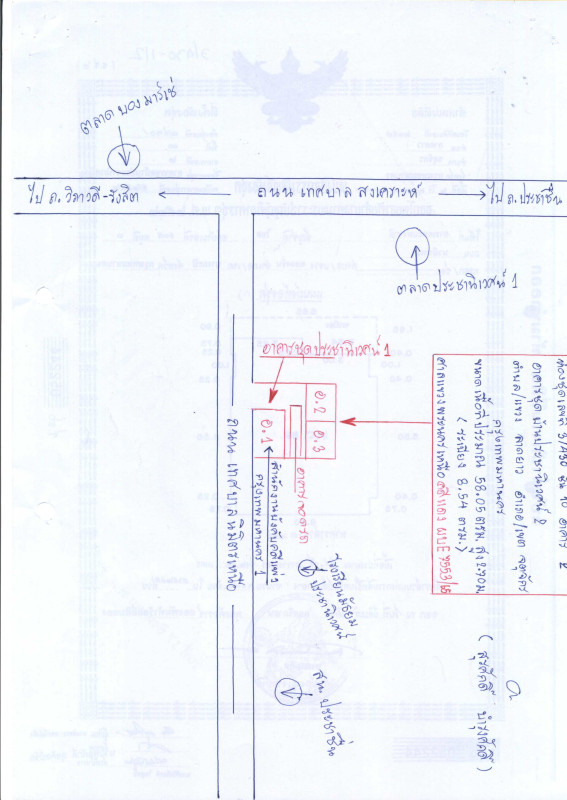 ตลาด บอง มาร์เช่
ไป ถ. วิภาวดี-รังสิต
ถนน เทศบาล สงเคราะห์
ไป ถ. ประชาชื่น
ตลาดประชานิเวศน์ 1
อาคารชุดประชานิเวศน์ 1
อ. 2
อ. 3
อ. 1
อาคารจอดรถ
สำนักงานบังคับคดีแพ่ง
กรุงเทพมหานคร 1
ถนน เทศบาลนิมิตรเหนือ
อาคารชุด บ้านประชานิเวศน์ 2
ตำบล/แขวง ลาดยาว อำเภอ/เขต จตุจักร
กรุงเทพมหานคร
ขนาดเนื้อที่ประมาณ 58.05 ตรม. สูง
( ระเบียง 8.54 ตรม. )
ศาลแขวงพระนครเหนือ
โรงเรียนมัธยม
ประชานิเวศน์
สน. ประชาชื่น